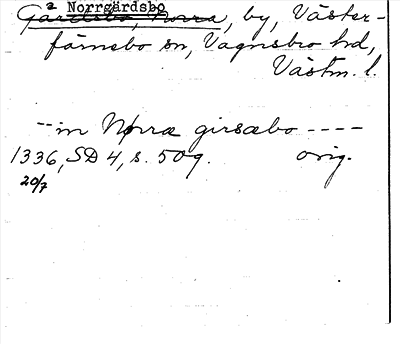 a Norrgärdsbo
Gärdsbo, Norra, by, Väster-
färnebo sn, Vagnsbro hd,
Västm. l.
-- in Norra girsæbo ----
1336, SD 4, s. 509. orig.
20/7